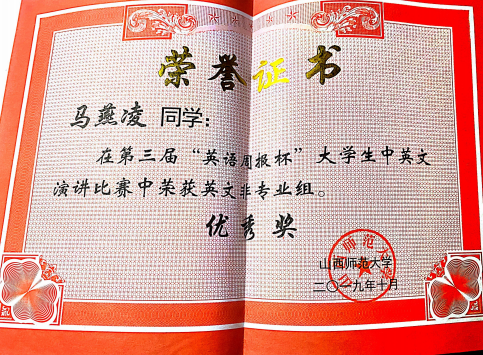 荣誉证书
马燕凌 同学：
在第三届“英语周报杯”大学生中英文
演讲比赛中荣获英文非专业组。
优秀奖
山西师范大学
二〇一九年十月